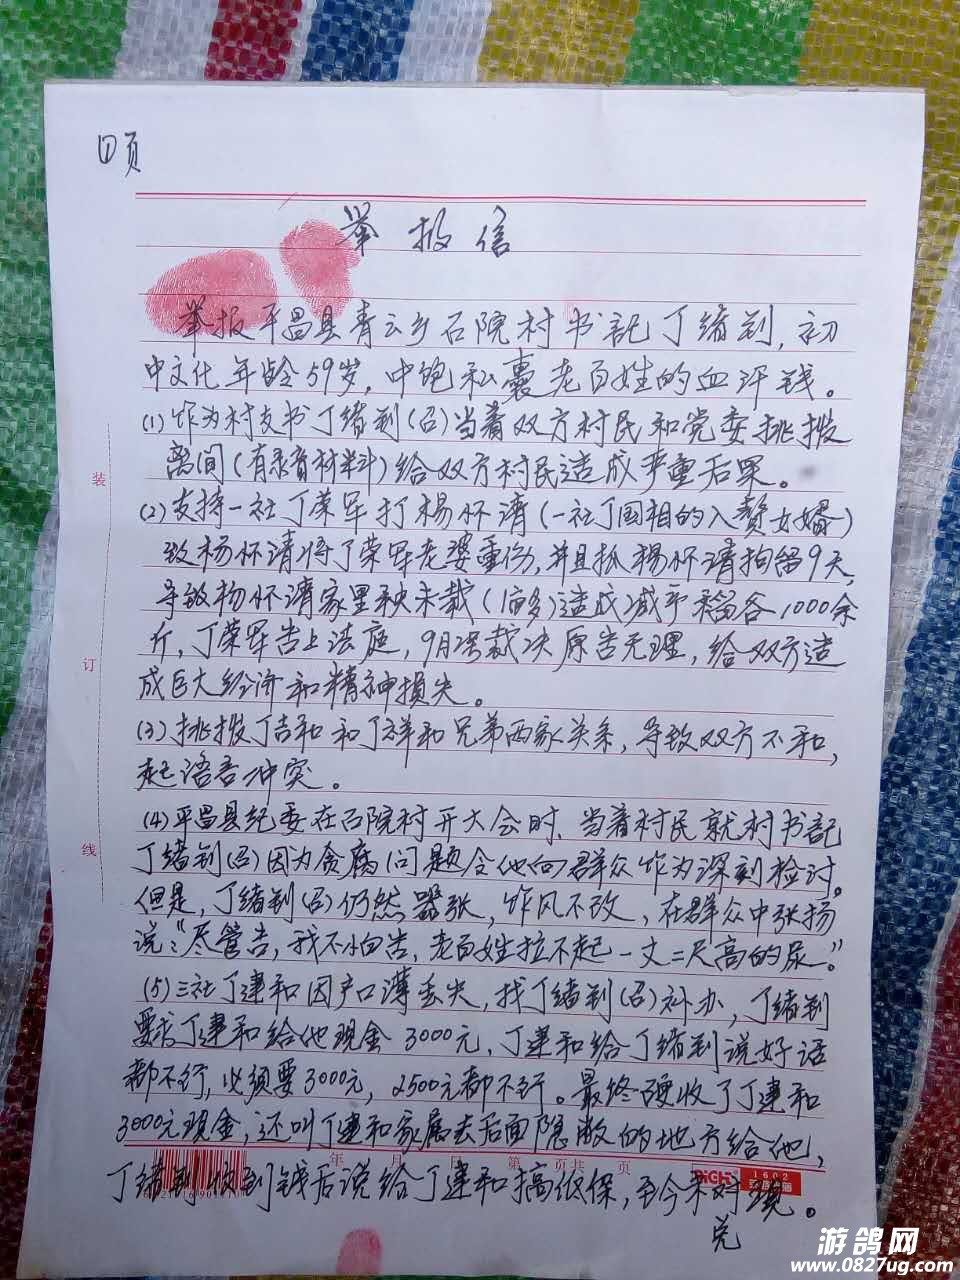 ①页
举报信
举报平昌县青云乡石院村书記丁绪钊,初
中文化年龄59岁,中饱私囊老百姓的血汗钱。
(1)作为村支书丁绪钊(召)当着双方村民和党委挑拨
离间(有录音材料)给双方村民造成严重后果。
(2)支持一社丁荣军打杨怀清(一社丁国相的入赘女婿)
致杨怀清将丁荣军老婆重伤,并且抓杨怀清拘留9天,
导致杨怀清家里秧未栽(1亩多)造成减产稻谷1000余
斤,丁荣军告上法庭,9月法裁决原告无理,给双方造
成巨大经济和精神损失。
(3)挑拨丁吉和和丁祥和兄弟两家关系,导致双方不和,
起语言冲突。
(4)平昌县纪委在石院村开大会时,当着村民就村书記
丁绪钊(召)因为贪腐问题令他向群众作为深刻检讨。
但是,丁绪钊(召)仍然嚣张,作风不改,在群众中张扬
说:“尽管告,我不怕告,老百姓拉不起一丈二尺高的尿。”
(5)三社丁建和因户口薄丢失,找丁绪钊(召)补办,丁绪钊
要求丁建和给他现金3000元,丁建和给丁绪钊说好话
都不行,必须要3000元,2500元都不行。最终硬收了丁建和
3000元现金,还叫丁建和家属去后面隐敝的地方给他,
丁绪钊收到钱后说给丁建和搞低保,至今未对现。
兑
装
订
线
年 月 日 第 页共 页
1602
游鸽网
www.0827ug.com